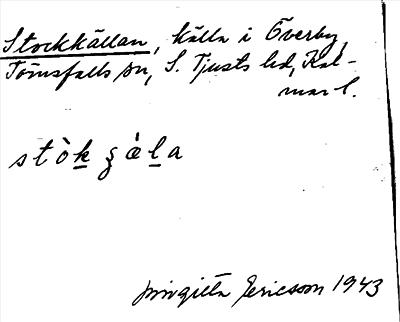 Stockkällan, källa i Överby,
Törnsfalls sn, S. Tjusts hd, Kal-
mar l.
stò̀k ʂæ̀la
Birgitta Ericsson 1943